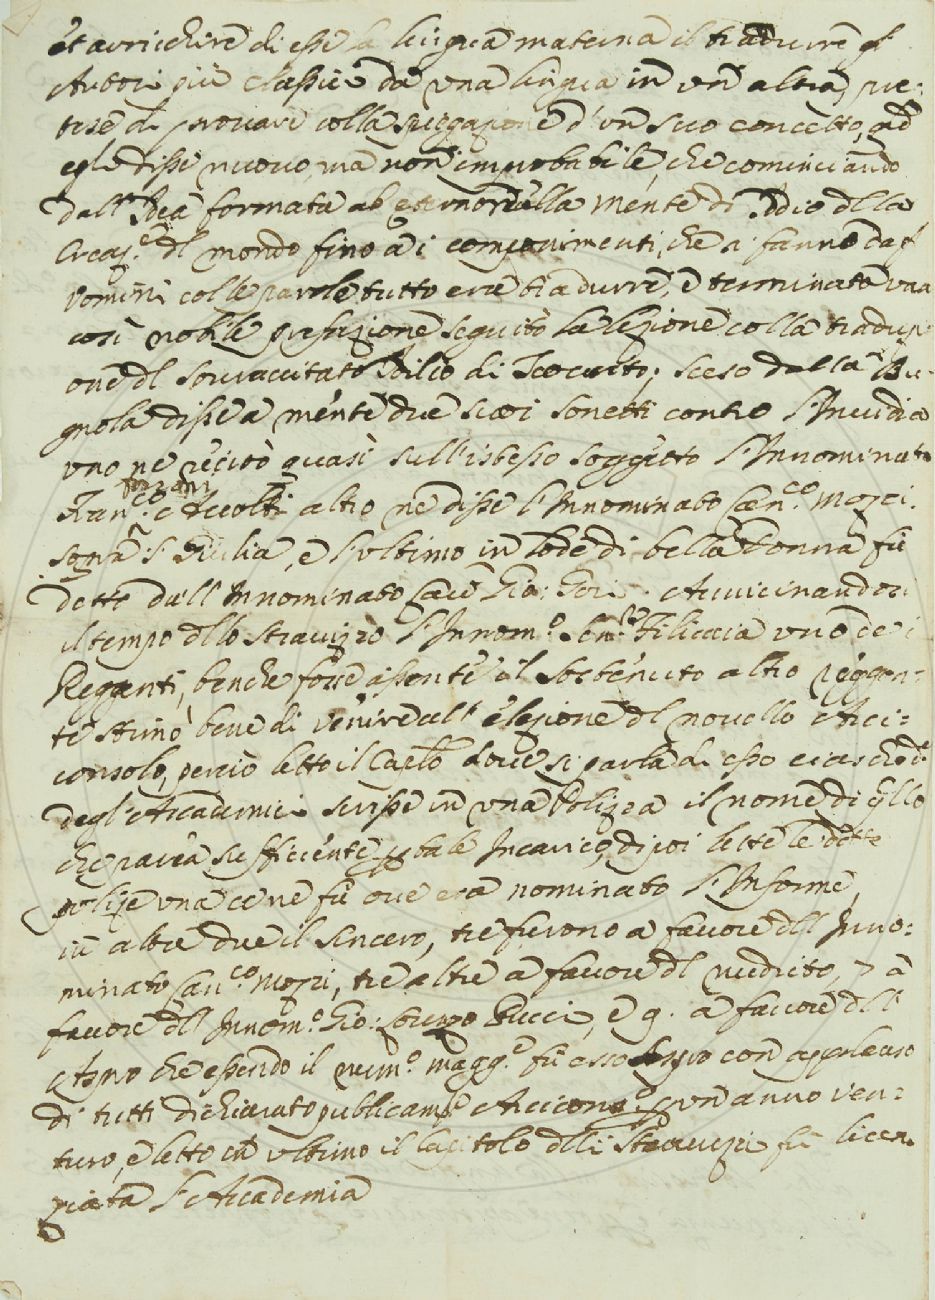 et arricchire di esse la lingua materna il tradurre gl'
Autori più classici da una lingua in un altra, pre-
tese di provare colla spiegazione d'un suo concetto, qd
egli disse nuovo, ma non improbabile, che cominciando
dall'Idea formata ab eterno nella Mente di Iddio della
Creaz.e dl mondo fino a i componimenti, che si fanno da gl'
vomini colle parole tutto era tradurre, e terminata una
così nobile prefazione seguitò la lezione colla traduzi
one dl sovraccitato Idilio di Teocrito; sceso dalla Bu-
gnola disse a mente due suoi sonetti contro l'Invidia
uno ne recitò quasi sull'istesso soggetto l'Innominato
Fran.co Forzoni Accolti altro ne disse l'Innominato Can.co Mozzi
sopra S. Giulia, e l'ultimo in lode di bella Donna fu
detto dall'Innominato Gio: Avvicinandosi
il tempo dllo stravizzo l'Innom.o Sen.re Filicaia uno de i
Reggenti, benche fosse assente il sostenuto altro reggen-
te stimò bene di venire all'elezione dl novello Arci-
consolo, perciò letto il Cap.lo dove si parla di esso ciasched.o
degl'Accademici scrisse in una Polizza il nome di q.llo
che parea sufficiente p tale Incarico, dipoi lette le dette
polize una ce ne fu ove era nominato l'Informe,
in altre due il sincero, tre furono a favore dll'Inno-
minato Can.co Mozzi, tre altre a favore dl medesimo, 7 a
favore dll'Innom.o Gio: Lorenzo Pucci, e 9. a favore dll'
che essendo il num.o magg.e fu esso con applauso
di tutti dichiarato publicam.e Arcicons.o p un anno ven-
turo, e letto in ultimo il Capitolo dlli Stravizzi fu licen
ziata l'Accademia